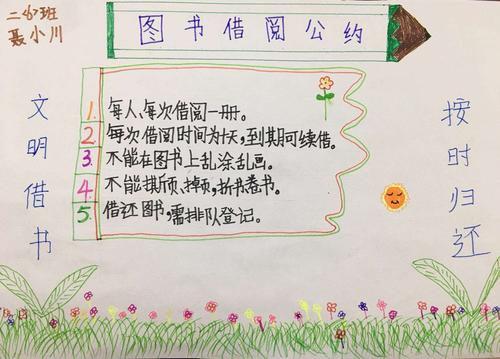 二班
聂小川
图书借阅公约
文明借书
1. 每人、每次借阅一册。
2. 每次借阅时间为十天,到期可续借。
3. 不能在图书上乱涂乱画。
4. 不能撕页、掉页,折书卷书。
5. 借还图书,需排队登记。
按时归还